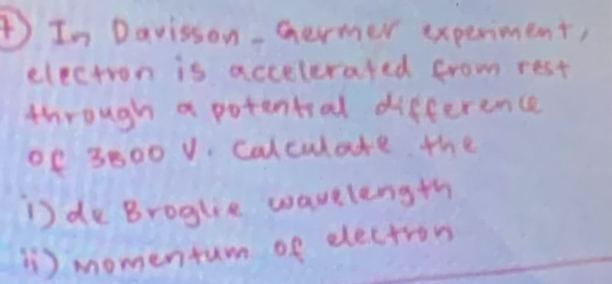 7) In Davisson - Germer experiment,
electron is accelerated from rest
through a potential difference
of 3800 V. Calculate the
i) de Broglie wavelength
ii) momentum of electron